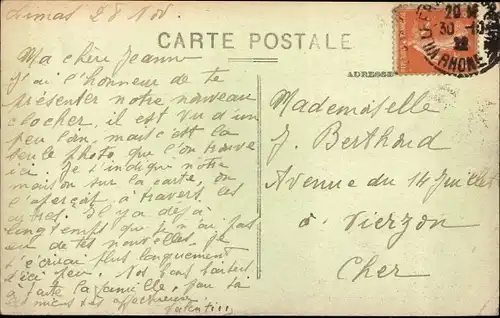 Limas 28 Nov.
CARTE POSTALE
ADRESSE
20
30 -10
22
RHONE
Ma chère Jeanne
J'ai l'honneur de te
présenter notre nouveau
clocher, il est vu d'un
peu loin, mais c'est la
seule photo que l'on trouve
ici. Je t'indique notre
maison sur la carte, on
l'aperçoit à travers les
arbres. Il y a déjà
longtemps que je n'ai pas
eu de tes nouvelles. Je
t'écrirai plus longuement
d'ici peu. Nos bons baisers
à toute la famille, pour toi
affectueux
Valentin
Mademoiselle
J. Berthard
Avenue du 14 Juillet
à Vierzon
Cher